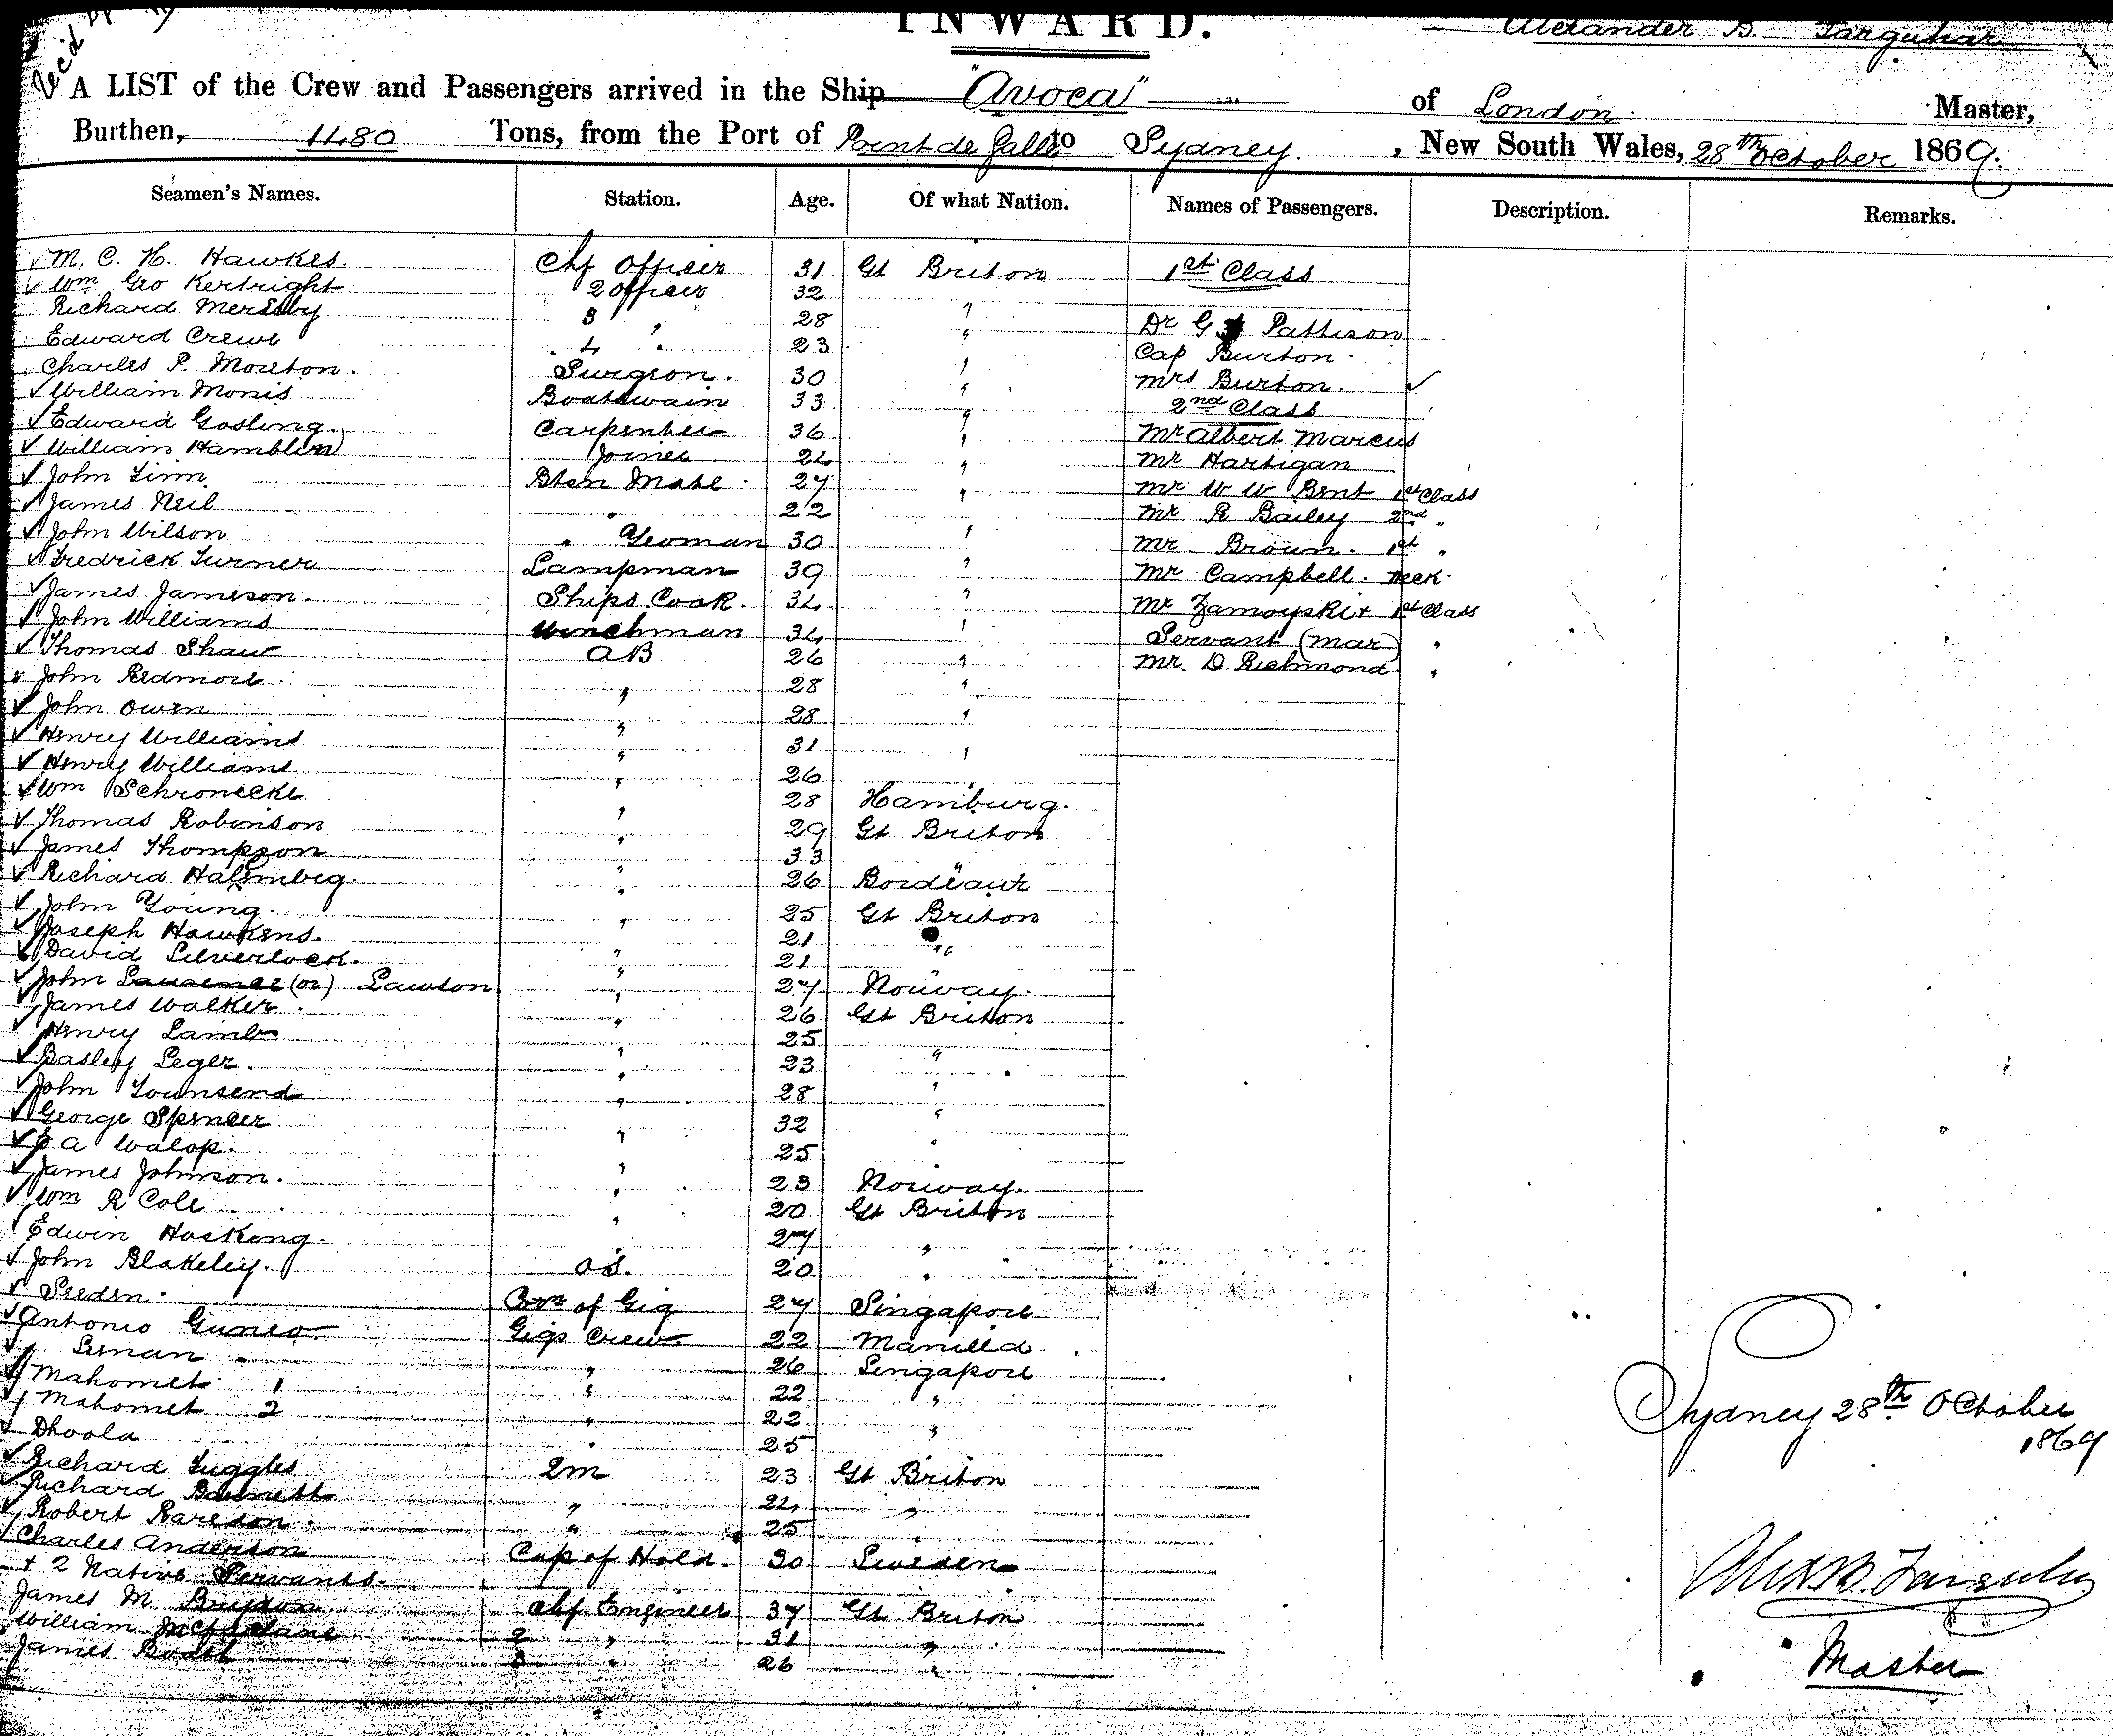 INWARD.
Alexander B. Farquhar
A LIST of the Crew and Passengers arrived in the Ship "Avoca" of London Master,
Burthen, 1480 Tons, from the Port of Point de Galle to Sydney, New South Wales, 28th October 1869.
Seamen's Names. Station. Age. Of what Nation. Names of Passengers. Description. Remarks.
M. C. H. Hawkes Chf Officer 31 Gt Briton 1st Class
Wm Geo Kertright 2 Officer 32
Richard 3 " 28 " Dr G Pattison
Edward Crewe 4 " 23 " Cap Burton.
Charles P. Moreton. Surgeon. 30 " Mrs Burton.
William Monis Boatswain 33 " 2nd Class
Edward Gosling. Carpenter 36 " Mr Albert Marcus
William Hamblin Joiner 24 " Mr Hartigan
John Linn Btsn Mate. 27 " Mr W W Bent 1st Class
James Neil " 22 " Mr R Bailey 2nd "
John Wilson " Yeoman 30 " Mr Brown. 1st "
Fredrick Turner Lampman 39 " Mr Campbell. Deck.
James Jameson. Ships Cook. 34 " Mr Zamoyski + 1st Class
John Williams Winchman 34 " Servant (Mar) "
Thomas Shaw AB 26 " Mr. D. Richmond "
John Redmore " 28 "
John Owen " 28 "
Henry Williams " 31 "
Henry Williams " 26
Wm Schronecke " 28 Hamburg.
Thomas Robinson " 29 Gt Briton
James Thompson " 33 "
Richard " 26 Bordeaux
John Young. " 25 Gt Briton
Joseph Hawkens. " 21 "
David Silverlock. " 21 "
John Laurence (or) Lawson " 27 Norway.
James Walker. " 26 Gt Briton
Henry Lamb " 25 "
Basley Leger. " 23 "
John Townsend " 28 "
George Spencer " 32 "
A Walop. " 25
James Johnson. " 23 Norway.
Wm R Cole " 20 Gt Briton
Edwin Hosking. " 27 "
John Blakeley. OS. 20 "
Seeden. Coxn of Gig 27 Singapore
Antonio Guneo Gigs Crew 22 Manilla
Sernan " 26 Singapore
Mahomet 1 " 22 "
Mahomet 2 " 22 "
Dhoola " 25
Richard Tuggles 2m 23 Gt Briton
Richard Bennett " 24 "
Robert Rareson " 25
Charles Anderson Cap of Hold. 30 Sweden
+ 2 Native Servants.
James M. Brydon Chf Engineer 37 Gt Briton
William McFarlane 2 " 31 "
James Booth 3 " 26 "
Sydney 28th October
1869
Alex B. Farquhar
Master